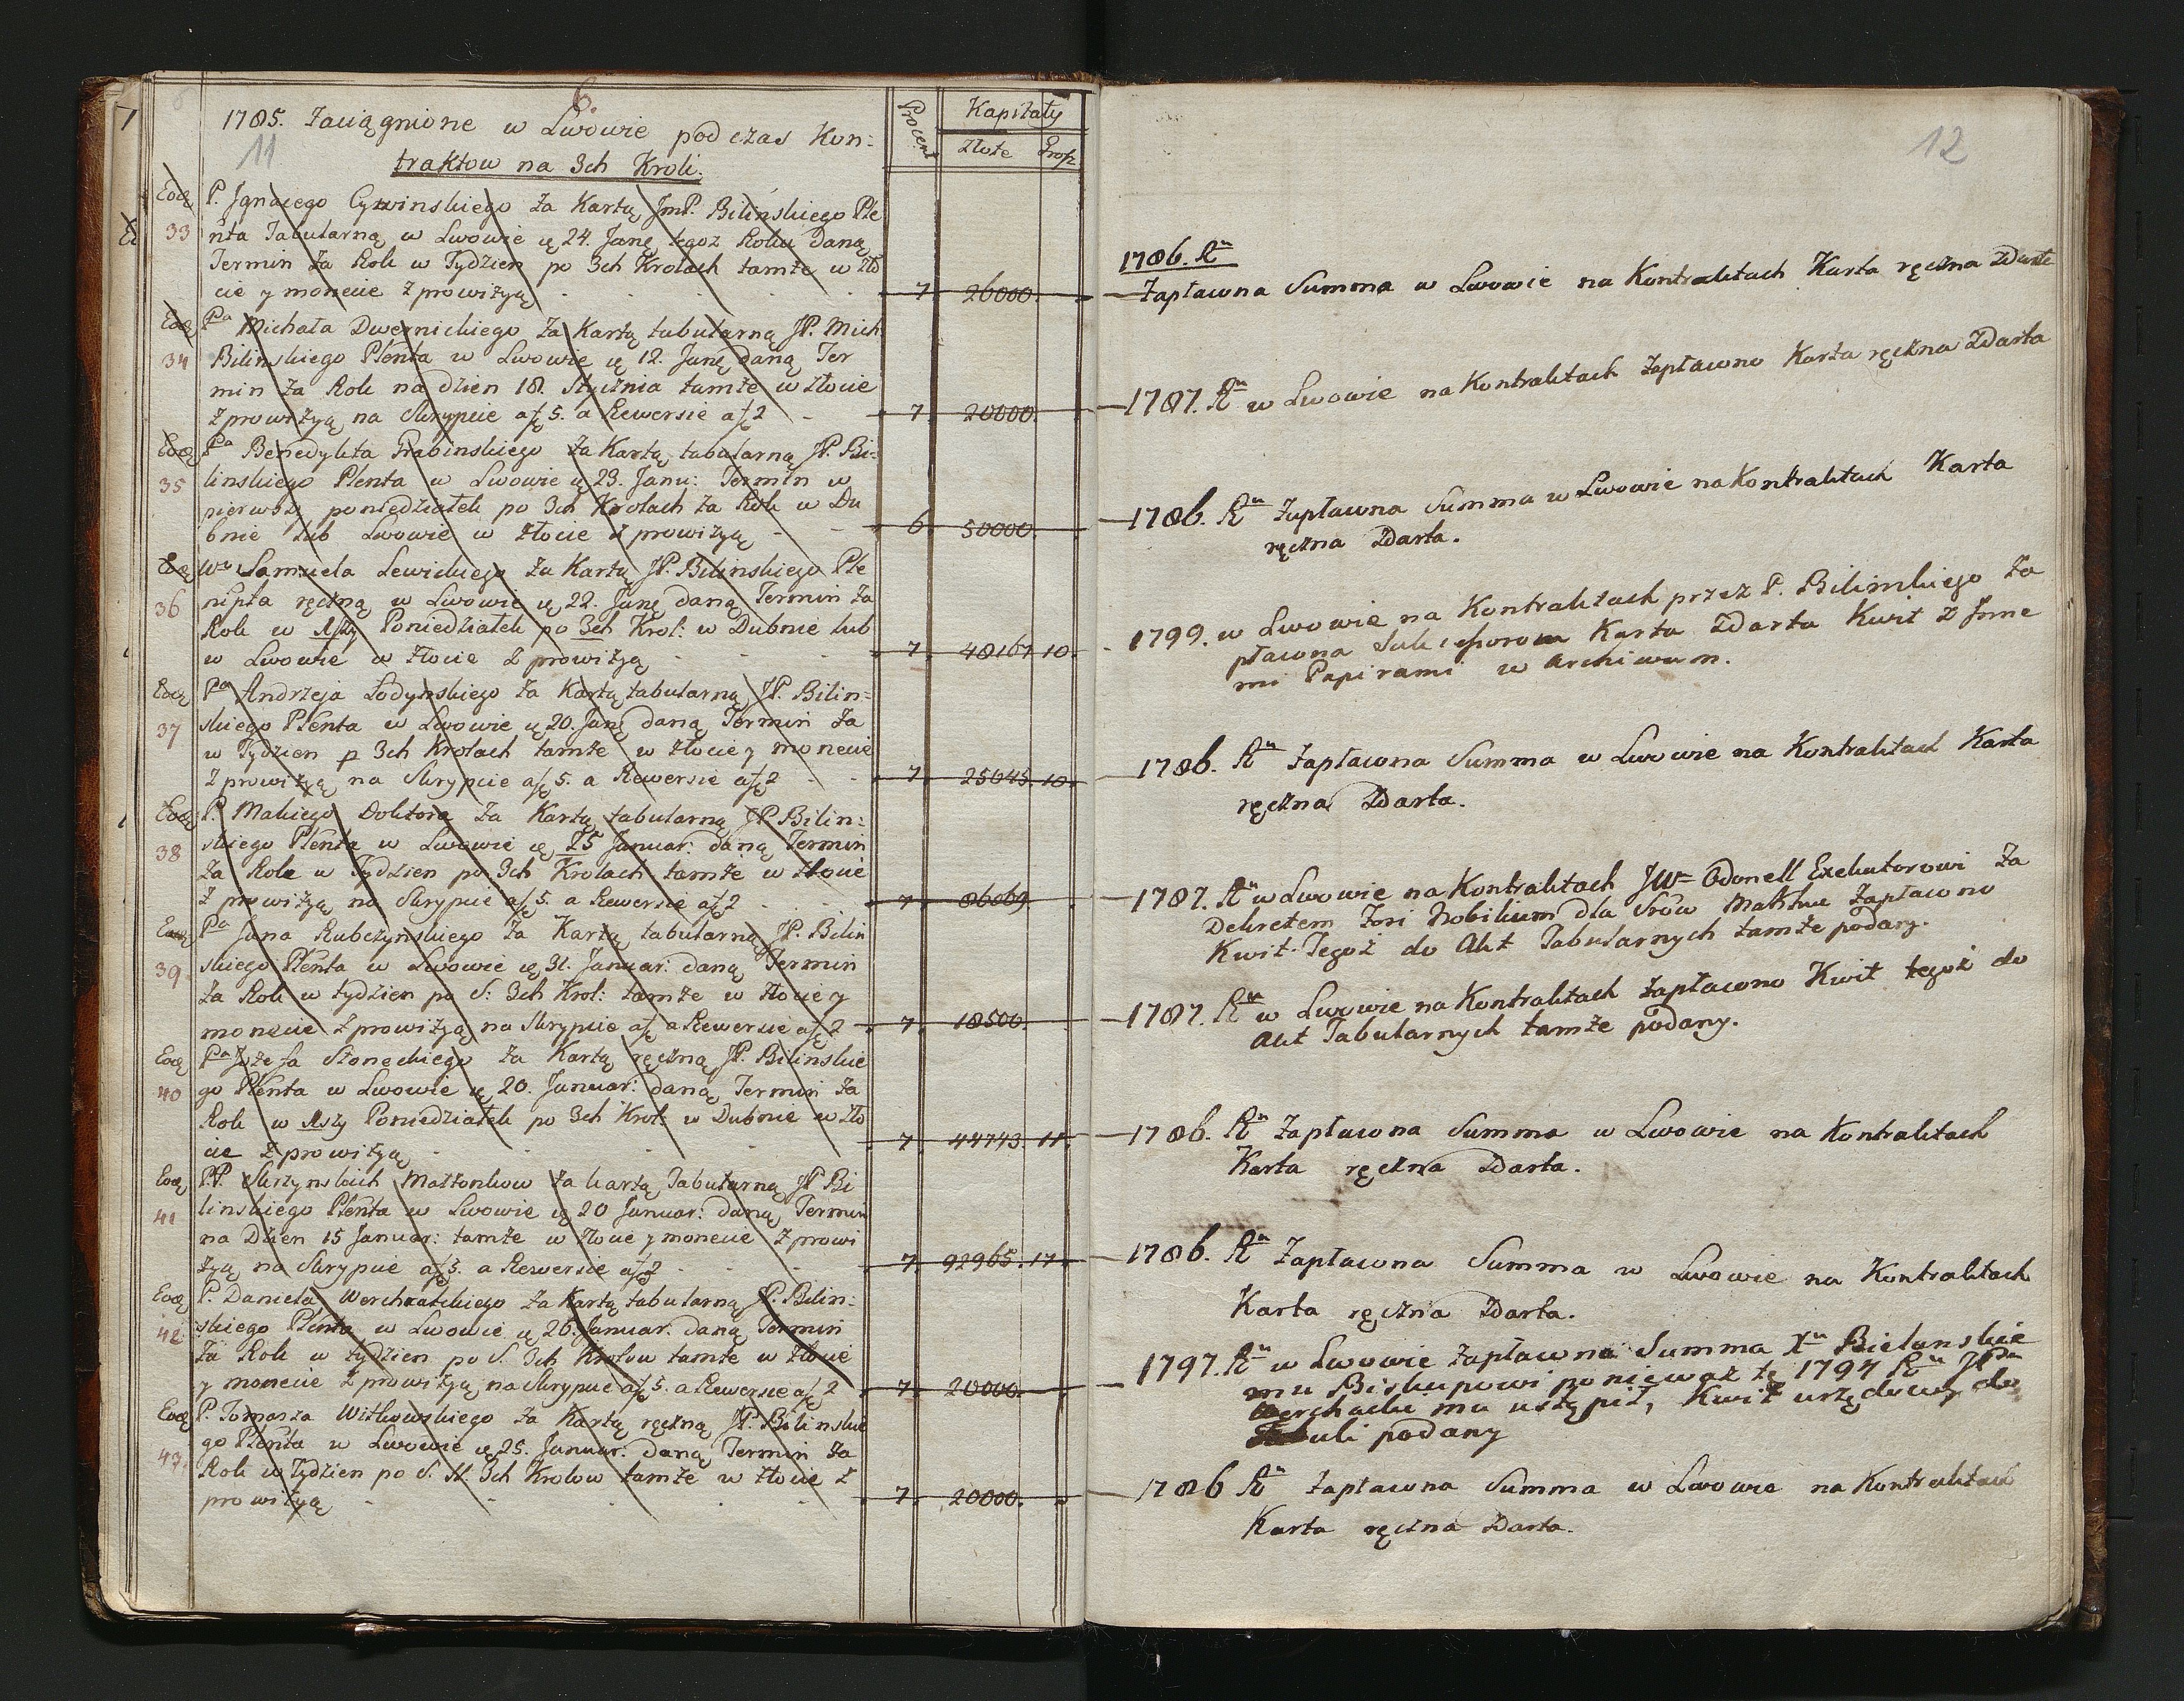 6.
11
1785. Zaciągnione w Lwowie podczas Kon:
traktow na 3ch Kroli.
Procent Kapitały
Złote Grosz
Eod
33
P. Ignacego Cywinskiego za Kartą JmP. Bilinskiego Ple
nta Tabularną w Lwowie 24. Janę tegoz Roku daną
Termin za Rok w Tydzien po 3ch Krolach tamże w zło
cie y monecie z prowizyą 7. 26000.
34
Pa Michała Dwernickiego za Kartą tabularną JP. Mich
Bilinskiego Plenta w Lwowie 12. Janę daną Ter
min za Rok na dzien 18. Stycznia tamże w złocie
z prowizyą na Skrypcie a 5. a Rewersie a 2 7. 20000.
35
Pa Benedykta Grabinskiego za Kartą tabularną JP. Bi=
linskiego Plenta w Lwowie 23. Janu: Termin w
pierwszy poniedziałek po 3ch Krolach za Rok w Du
bnie lub Lwowie w złocie z prowizyą 6. 50000.
36
Wo Samuela Lewickiego za Kartą JP. Bilinskiego Ple
nipta ręczną w Lwowie 22. Janę daną Termin za
Rok w 1szy Poniedziałek po 3ch Krol: w Dubnie lub
w Lwowie w złocie z prowizyą 7. 48167 10.
37
Pa Andrzeja Łodynskiego za Kartą tabularną JP. Bilin=
skiego Plenta w Lwowie 20. Janę daną Termin za
w Tydzien p 3ch Krolach tamże w złocie y monecie
z prowizyą na Skrypcie a 5. a Rewersie a 2 7. 25645. 10.
38
P. Makiego Doktora za Kartą tabularną JP. Bilin:
skiego Plenta w Lwowie 25 Januar: daną Termin
za Rok w Tydzien po 3ch Krolach tamże w złocie
z prowizyą na Skrypcie a 5. a Rewersie a 2 7. 86069.
39.
Pa Jana Rubczynskiego za Kartą tabularną JP. Bilin
skiego Plenta w Lwowie 31. Januar: daną Termin
za Rok w tydzien po S: 3ch Krol: tamże w złocie y
monecie z prowizyą na Skrypcie a a Rewersie a 2 7. 18500.
40
Pa Jozefa Stoneckiego za Kartą ręczną JP. Bilinskie
go Plenta w Lwowie 20. Januar: daną Termin za
Rok w 1szy Poniedziałek po 3ch Krol: w Dubnie w zło
cie z prowizyą 7. 44743 11.
41
P.P. Skrzynskich Małżonkow za kartą Tabularną JP Bi
linskiego Plenta w Lwowie 20 Januar: daną Termin
na Dzien 15 Januar: tamże w złocie y monecie z prowi
zyą na Skrypcie a 5. a Rewersie a 2 7. 92965. 17.
42
P. Daniela Werchratskiego za Kartą tabularną JP. Bilin:
skiego Plenta w Lwowie 26. Januar: daną Termin
za Rok w tydzien po S. 3ch Krolow tamże w złocie
y monecie z prowizyą na Skrypcie a 5. a Rewersie a 2 7. 20000.
43.
P. Tomasza Witkowskiego za Kartą ręczną JP. Bilinskie
go Plenta w Lwowie 25. Januar: daną Termin za
Rok w Tydzien po S. 3ch Krolow tamże w złocie z
prowizyą 7. 20000.
12
1786. Ru
Zapłacona Summa w Lwowie na Kontraktach Karta ręczna Zdarta
1787. Ru w Lwowie na Kontraktach zapłacono Karta ręczna Zdarta
1786. Ru zapłacona Summa w Lwowie na Kontraktach Karta
ręczna Zdarta.
1799. w Lwowie na Kontraktach przez P. Bilinskiego Za
płacona Sukcessorom Karta Zdarta Kwit z Inne
mi Papirami w Archiwum.
1786. Ru zapłacona Summa w Lwowie na Kontraktach Karta
ręczna Zdarta.
1787. Ru w Lwowie na Kontraktach JW Odonell Exekutorowi Za
Dekretem Fori Nobilium dla Srów zapłacono
Kwit Tegoż do Akt Tabularnych tamże podany.
1787. Ru w Lwowie na Kontraktach zapłacono Kwit tegoż do
Akt Tabularnych tamże podany.
1786. Ru Zapłacona Summa w Lwowie na Kontraktach
Karta ręczna Zdarta.
1786. Ru Zapłacona Summa w Lwowie na Kontraktach
Karta ręczna Zdarta.
1797. Ru w Lwowie zapłacona Summa Xu Bielanskie
mu Biskupowi ponieważ tę 1794 Ru JPan
mu ustąpił, Kwit urzędowy do
Tabuli podany
1786 Ru zapłacona Summa w Lwowie na Kontraktach
Karta ręczna Zdarta.